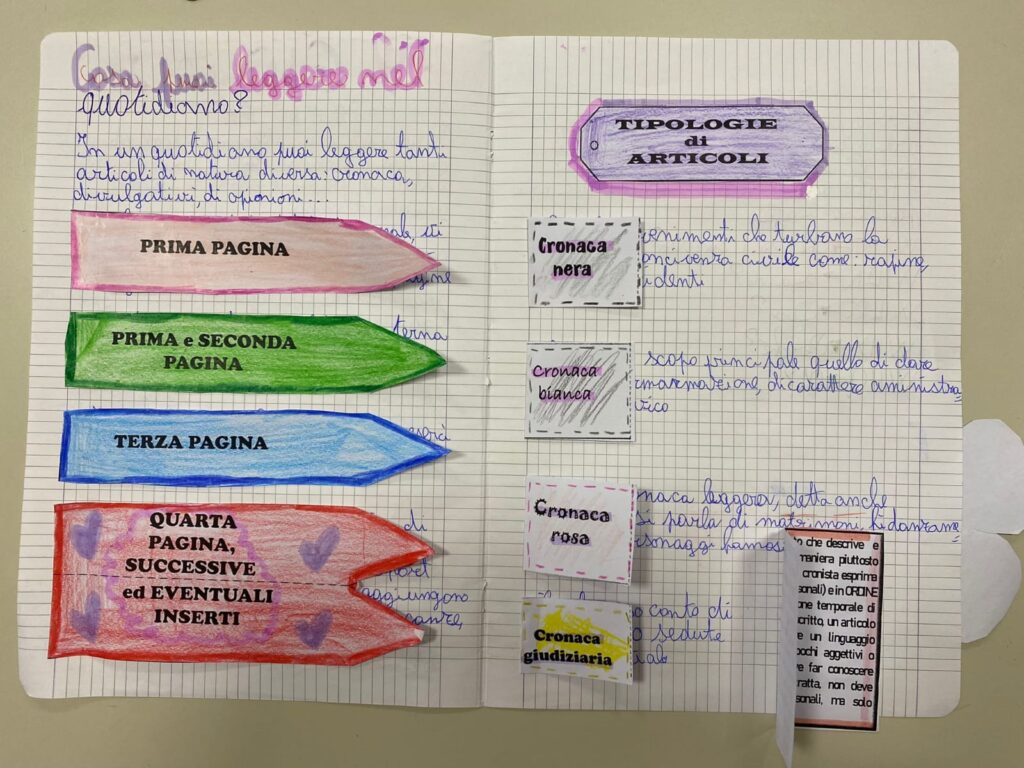 Cosa puoi leggere nel
quotidiano?
In un quotidiano puoi leggere tanti
articoli di natura diversa: cronaca,
divulgativi, di opinioni...
PRIMA PAGINA
PRIMA e SECONDA
PAGINA
terna
TERZA PAGINA
QUARTA
PAGINA,
SUCCESSIVE
ed EVENTUALI
INSERTI
di
port
aggiungono
TIPOLOGIE
di
ARTICOLI
Cronaca
nera
venimenti che turbano la
convivenza civile come: rapine,
identi
Cronaca
bianca
scopo principale quello di dare
di carattere aministra-
Cronaca
rosa
naca leggera, detta anche
si parla di matrimoni, fidanzame
rsonaggi famosi
Cronaca
giudiziaria
conto di
sedute
o che descrive e
maniera piuttosto
cronista esprima
sonali) e in ORDINE
one temporale di
critto, un articolo
e un linguaggio
pochi aggettivi o
ve far conoscere
ratta, non deve
sonali, ma solo